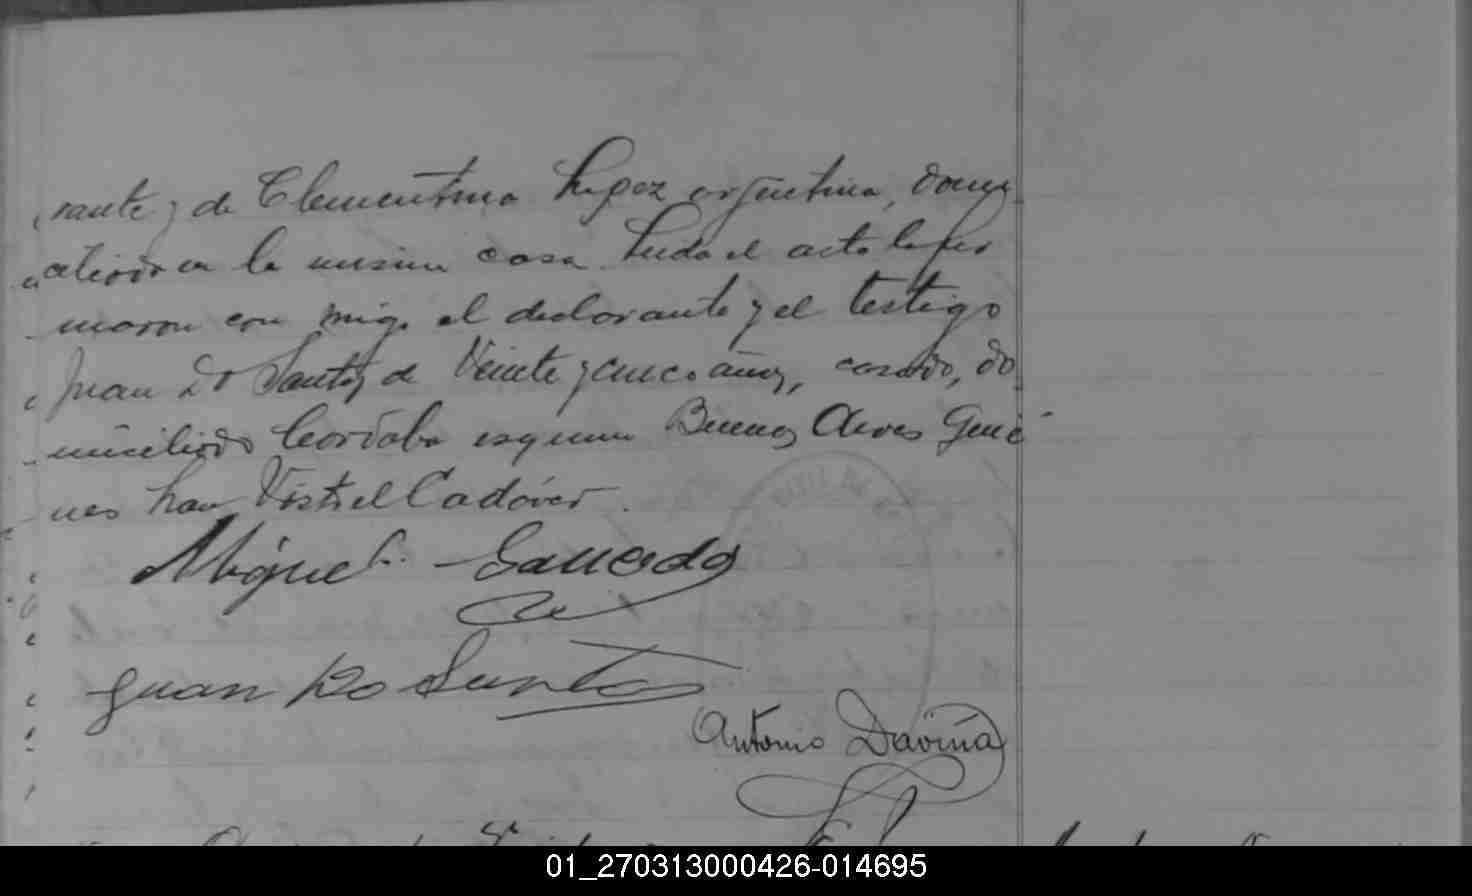 rante, y de Clementina Lopez argentina, domi
ciliada en la misma casa. Leida el acta la fir
maron con migo el declarante y el testigo
Juan Do Santos de Veinte y cinco años, casado, do
miciliado Cordoba esquina Buenos Aires quie
nes han Visto el Cadáver.
Miguel
Juan Do Santos
Antonio Daviña
01_270313000426-014695